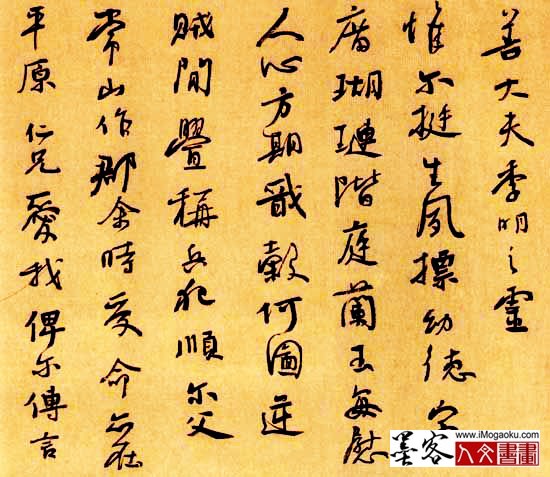 善大夫季明之靈
惟尔挺生夙摽幼德宗
廟瑚璉階庭蘭玉每慰
人心方期戩穀何圖逆
賊間釁稱兵犯順尔父
常山作郡余時受命亦在
平原仁兄愛我俾尔傳言
墨客
www.iMogaoku.com
人文書畫